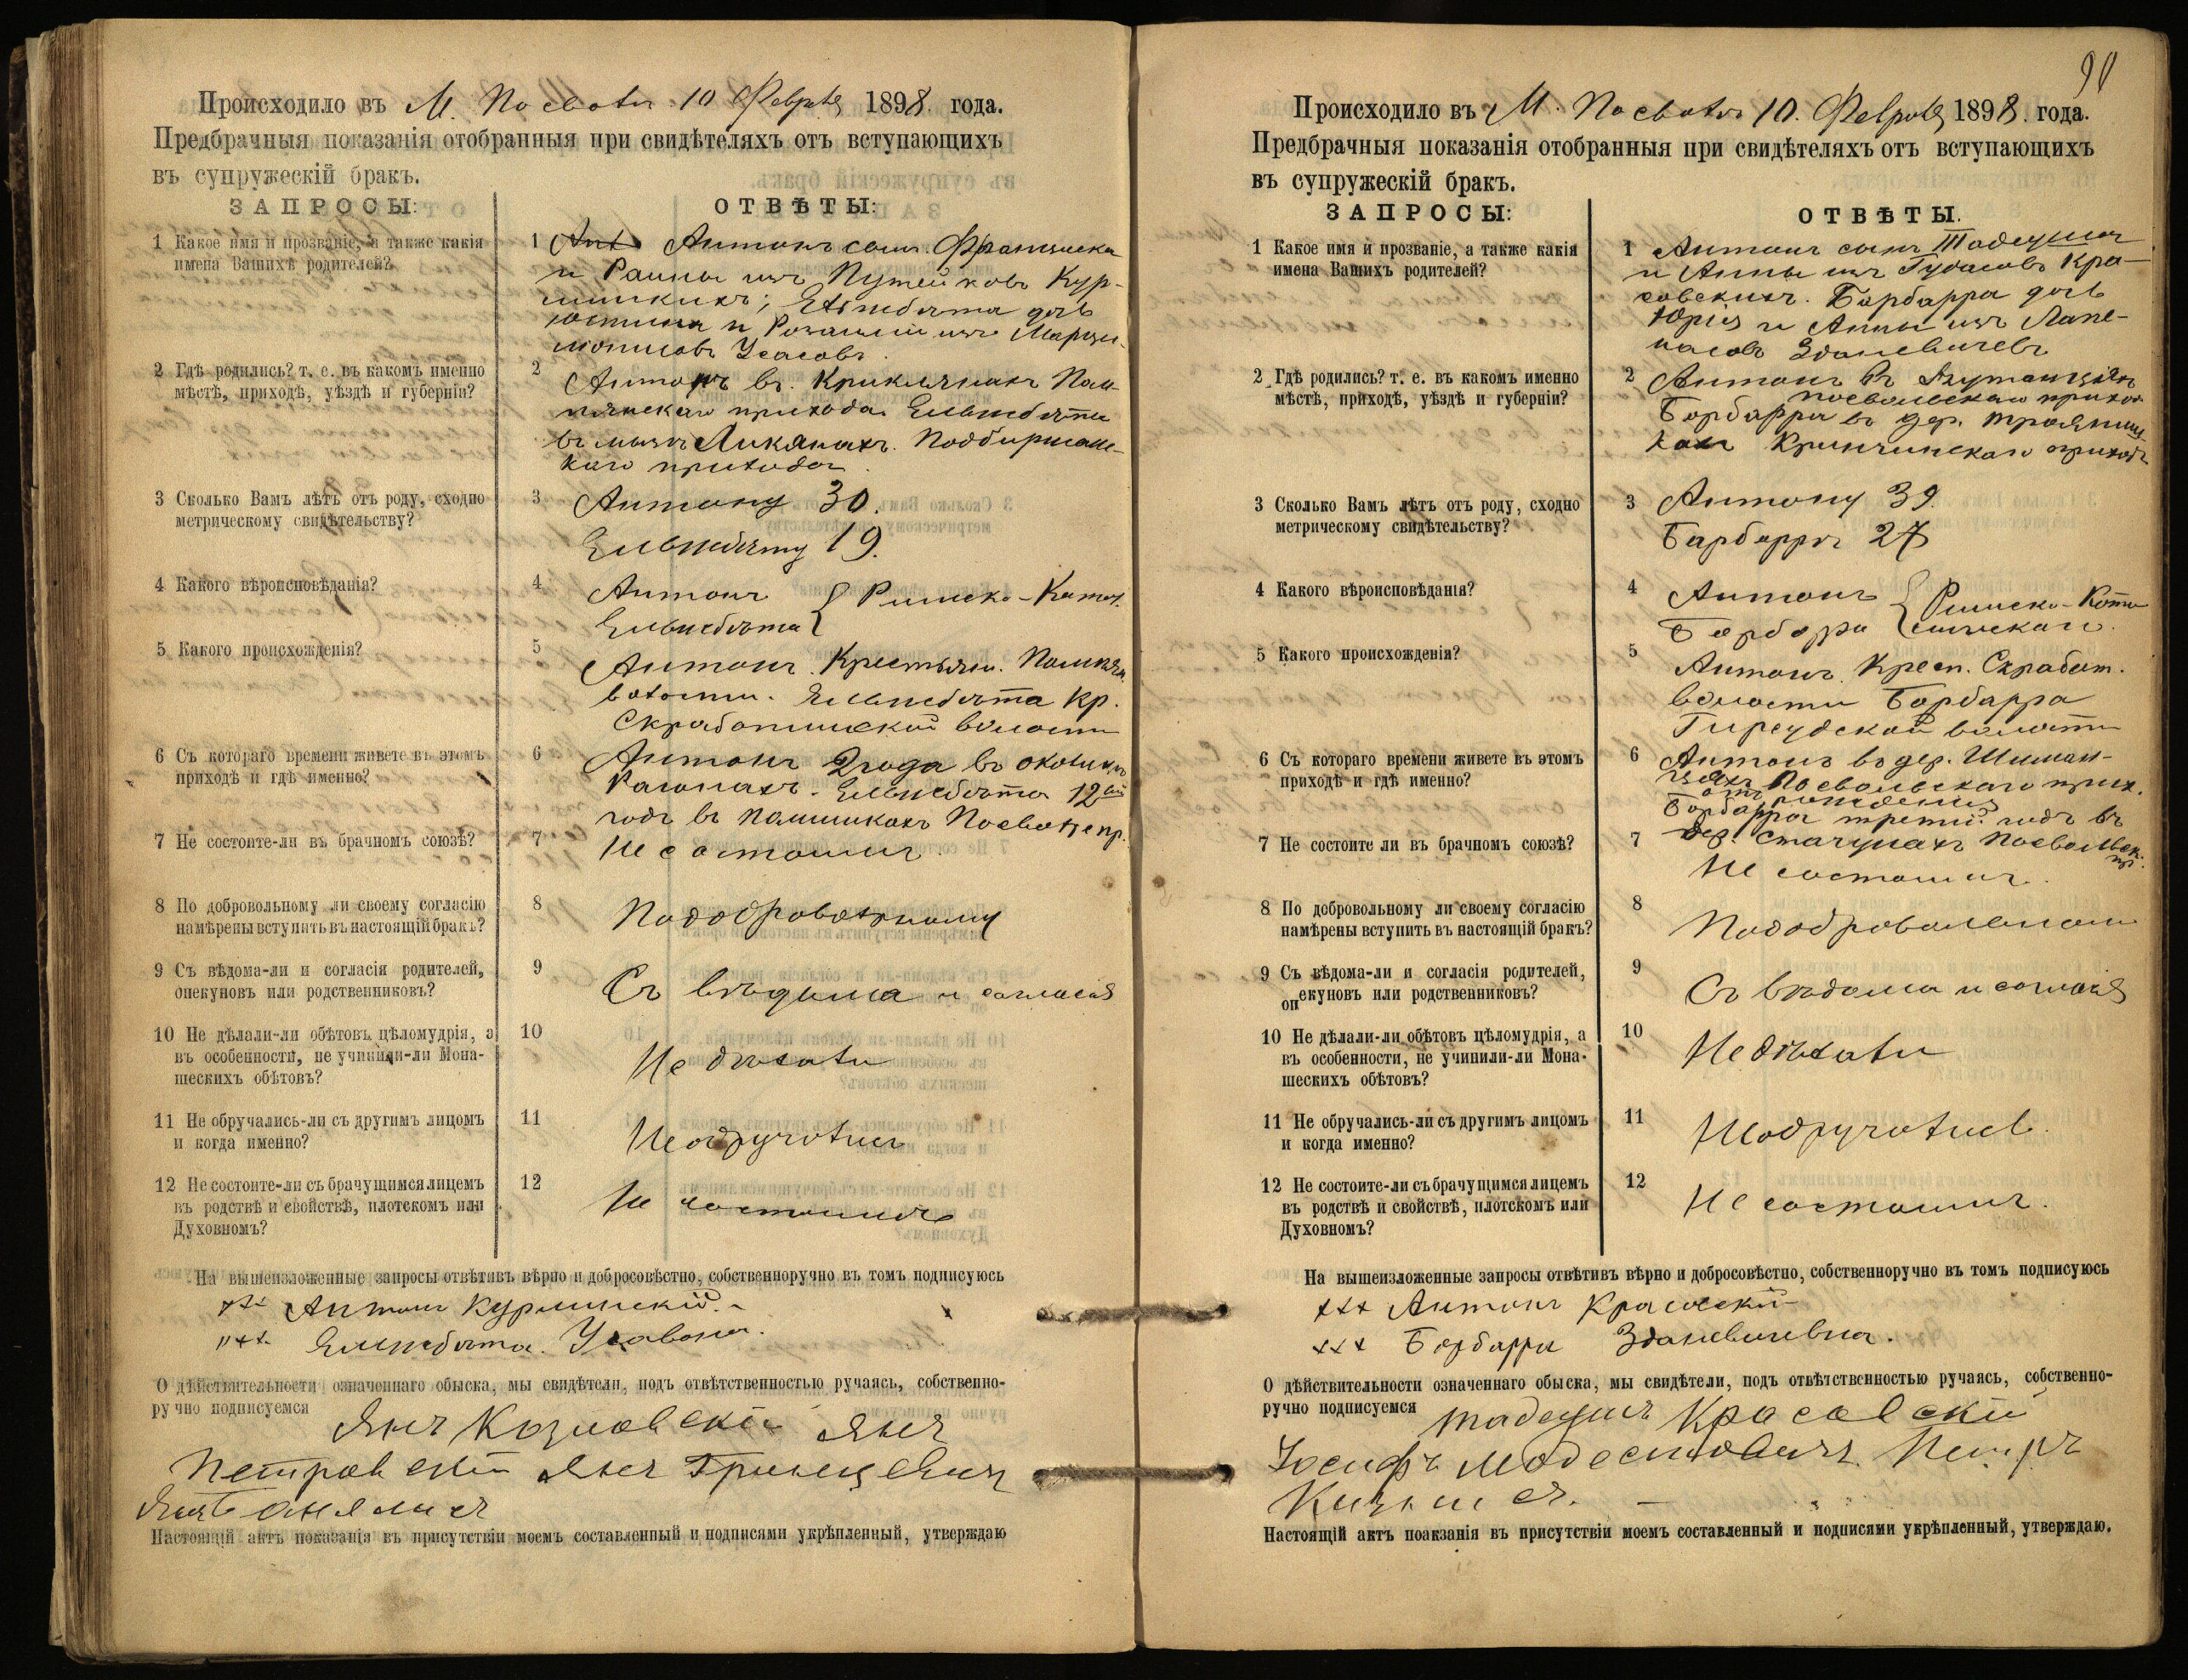 Происходило въ М. Посволи 10 Февраля 1898 года.
Предбрачныя показанія отобранныя при свидѣтеляхъ отъ вступающихъ
въ супружескій бракъ.
ЗАПРОСЫ:
ОТВѢТЫ:
1 Какое имя и прозваніе, а также какія
имена Вашихъ родителей?
1 Антонъ сынъ Франциска
и Раины изъ
Елисабета дочь
и Розаліи изъ
Усасовъ
2 Гдѣ родились? т. е. въ какомъ именно
мѣстѣ, приходѣ, уѣздѣ и губерніи?
2 Антонъ въ Криклянахъ
прихода Елисабета
въ Ликянахъ Подбиржанс-
каго прихода
3 Сколько Вамъ лѣтъ отъ роду, сходно
метрическому свидѣтельству?
3 Антону 30.
19.
4 Какого вѣроисповѣданія?
4 Антонъ Римско-Катол.
Елисабета
5 Какого происхожденія?
5 Антонъ Крестьян.
волости. Елисабета Кр.
Скработишской волости
6 Съ котораго времени живете въ этомъ
приходѣ и гдѣ именно?
6 Антонъ 2 года въ околицѣ
Елисабета 12
годъ въ
7 Не состоите-ли въ брачномъ союзѣ?
7 Не состоимъ
8 По добровольному ли своему согласію
намѣрены вступить въ настоящій бракъ?
8 По добровольному
9 Съ вѣдома-ли и согласія родителей,
опекуновъ или родственниковъ?
9 Съ вѣдома и согласія
10 Не дѣлали-ли обѣтовъ цѣломудрія, а
въ особенности, не учинили-ли Мона-
шескихъ обѣтовъ?
10 Не дѣлали
11 Не обручались-ли съ другимъ лицомъ
и когда именно?
11 Не обручались
12 Не состоите-ли съ брачущимся лицемъ
въ родствѣ и свойствѣ, плотскомъ или
Духовномъ?
12 Не состоимъ
На вышеизложенные запросы отвѣтивъ вѣрно и добросовѣстно, собственноручно въ томъ подписуюсь
xxx Антонъ
xxx Елисабета
О дѣйствительности означеннаго обыска, мы свидѣтели, подъ отвѣтственностью ручаясь, собственно-
ручно подписуемся Янъ Козловскій Янъ
Петровскій Янъ Гриневич
Янъ
Настоящій актъ показанія въ присутствіи моемъ составленный и подписями укрѣпленный, утверждаю
90
Происходило въ М. Посволи 10. Февраля 1898. года.
Предбрачныя показанія отобранныя при свидѣтеляхъ отъ вступающихъ
въ супружескій бракъ.
ЗАПРОСЫ:
ОТВѢТЫ.
1 Какое имя и прозваніе, а также какія
имена Вашихъ родителей?
1 Антонъ сынъ Тадеуша
и Анны изъ Гудасовъ Кра-
совскихъ. Барбарра дочь
Юрія и Анны изъ Лапе-
насовъ Здановичевъ
2 Гдѣ родились? т. е. въ какомъ именно
мѣстѣ, приходѣ, уѣздѣ и губерніи?
2 Антонъ въ
посвольскаго прихода
Барбарра въ дер.
Кринчинскаго прихода
3 Сколько Вамъ лѣтъ отъ роду, сходно
метрическому свидѣтельству?
3 Антону 39.
Барбаррѣ 27
4 Какого вѣроисповѣданія?
4 Антонъ Римско-Като-
Барбарра лическаго.
5 Какого происхожденія?
5 Антонъ Крест. Скработ.
волости Барбарра
Гирсудской волости
6 Съ котораго времени живете въ этомъ
приходѣ и гдѣ именно?
6 Антонъ въ дер. Шиман-
Посвольскаго прих.
отъ рожденія
Барбарра третій годъ въ
дер. Стачунахъ Посвольск.
пр.
7 Не состоите ли въ брачномъ союзѣ?
7 Не состоимъ.
8 По добровольному ли своему согласію
намѣрены вступить въ настоящій бракъ?
8 По добровольному
9 Съ вѣдома-ли и согласія родителей,
опекуновъ или родственниковъ?
9 Съ вѣдома и согласія
10 Не дѣлали-ли обѣтовъ цѣломудрія, а
въ особенности, не учинили-ли Мона-
шескихъ обѣтовъ?
10 Не дѣлали
11 Не обручались-ли съ другимъ лицомъ
и когда именно?
11 Не обручались.
12 Не состоите-ли съ брачущимся лицемъ
въ родствѣ и свойствѣ, плотскомъ или
Духовномъ?
12 Не состоимъ.
На вышеизложенные запросы отвѣтивъ вѣрно и добросовѣстно, собственноручно въ томъ подписуюсь
xxx Антонъ Красовскій
xxx Барбарра Здановичевна.
О дѣйствительности означеннаго обыска, мы свидѣтели, подъ отвѣтственностью ручаясь, собственно-
ручно подписуемся Тадеушъ Красовскій
Іосифъ Модестовичъ Петръ
Настоящій актъ поаказанія въ присутствіи моемъ составленный и подписями укрѣпленный, утверждаю.